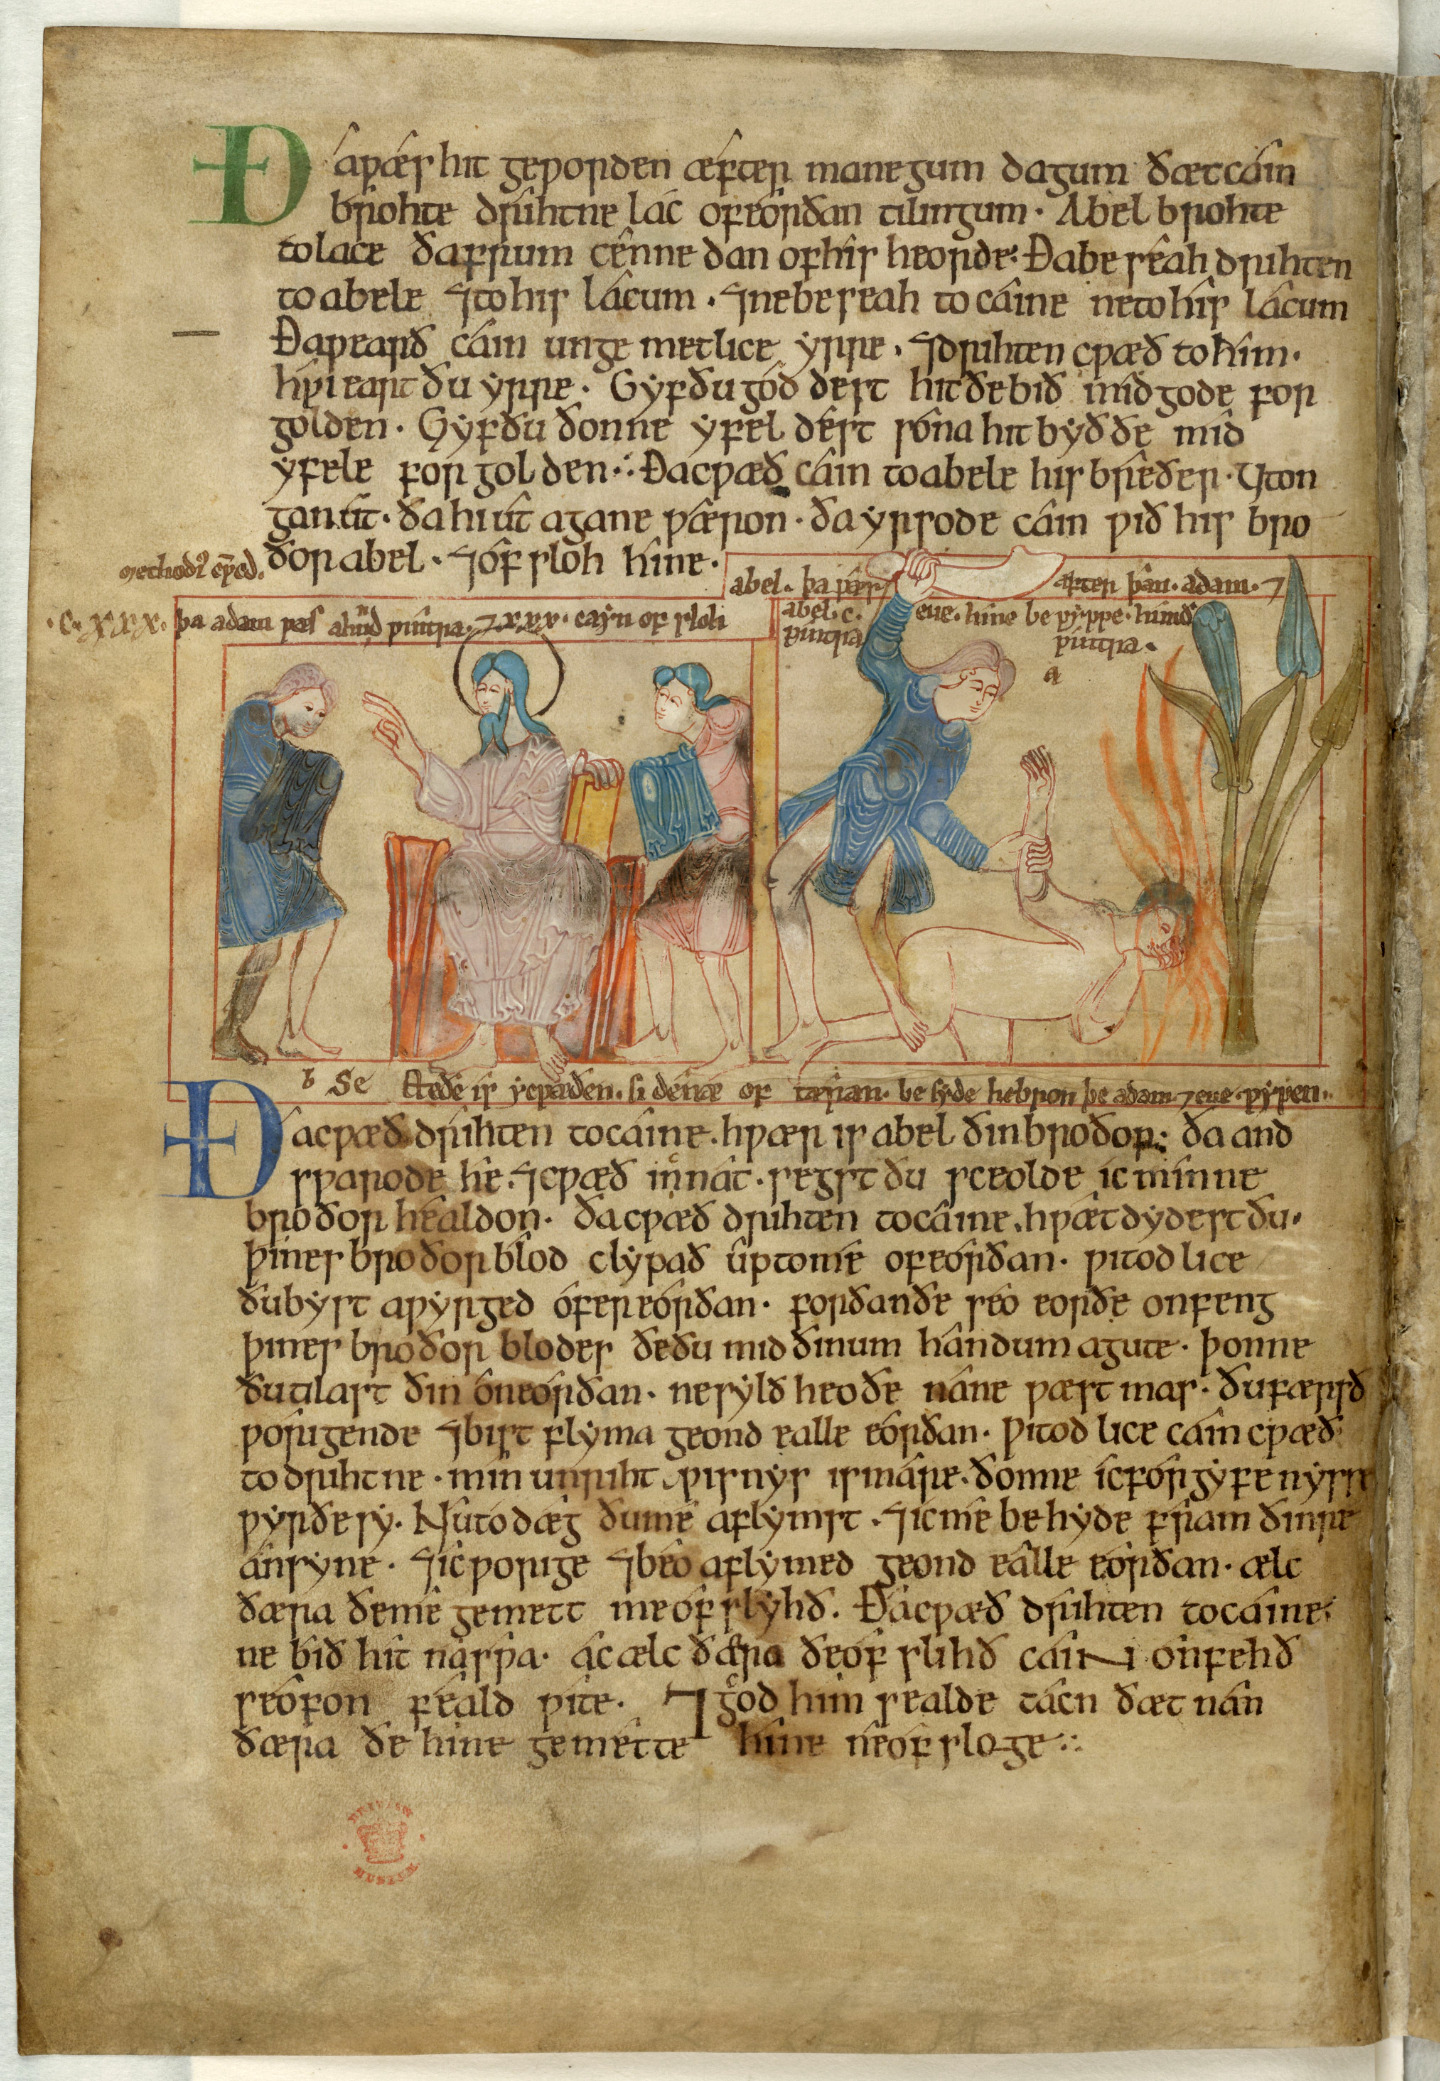 Ða ƿæs hit geƿorden æfter manegum dagum ðæt cáin
brohte drihtne lác of eórðan tilingum· Abel brohte
to lace ða frum cênnedan of his heorde: Ða beseah drihten
to abele ⁊ to his lâcum · ⁊ ne beseah to câine ne to his lâcum
Ða ƿearð cáin ungemetlice ẏrre · ⁊ drihten cƿæð to him·
hƿi eart ðu ẏrre· Gẏf ðu gód dest hit ðe bið mid gode for
golden· Gẏf ðu ðonne ẏfel dést sóna hit bẏð ðe mid
ẏfele forgolden:· Ða cƿæð câin to abele his breðer· Uton
gan út· ða hi ût agane ƿæron· ða ẏrsode cáin ƿið his bro
ðor abel· ⁊ ofsloh hine·
methodꝰ cƿæð.
abel· þa ƿæs
æfter þan· adam· ⁊
·c·xxx· þa adam ƿæs ahund ƿintra· ⁊ xxx· caẏn ofsloh
abel·c·
ƿintra
eue· hine beƿẏppe· hund
ƿintra·
a
b Se Stede is ẏcƿæden· be sẏde hebron þe adam ⁊ eue ƿẏþen·
Ða cƿæð drihten to câine· hƿær is abel ðin broðor: ða and
sƿarode hê· ⁊ cƿæð ic nât· segst ðu sceolde ic minne
broðor healdon· ða cƿæð drihten to câine, hƿæt dẏdest ðu·
þines broðor blod clẏpað ûp to mé of eórðan· ƿitodlice
ðu bẏst aƿẏrged ofer eórðan· forðan ðe séo eorðe onfeng
þines broðor blodes ðe ðu mid ðinum handum agute· þonne
ðu tilast ðin on eórðan· ne sẏlð heo ðe nâne ƿæstmas· ðu færst
ƿorigende ⁊ bist flẏma geond ealle eórðan· Ƿitodlice câin cƿæð
to drihtne · min unriht ƿisnẏs is mâre· ðonne ic forgẏfenẏsse
ƿẏrðe sẏ· Nu to dæg ðu me aflẏmst · ⁊ ic me behẏde fram ðinre
ânsẏne · ⁊ ic ƿorige ⁊ béo aflẏmed geond ealle eórðan· ælc
ðæra ðe me gemett me ofslẏhð. Ða cƿæð drihten to cáine:
ne bið hit na sƿa· ac ælc ðæra ðe ofslihð cáin onfehð
seofon feald ƿite· ⁊ god him sealde tácn ðæt nán
ðæra ðe hine gemette hine ne ofsloge:·
BRITISH
MUSEUM